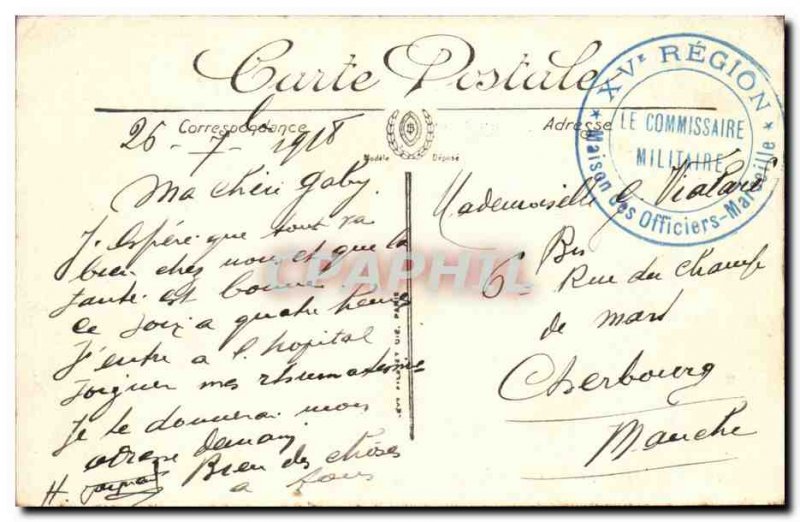 Carte Postale
Correspondance
Adresse
Modèle Déposé
XVe RÉGION
LE COMMISSAIRE
MILITAIRE
★ Maison des Officiers-Marseille ★
26-7-1918
Ma chéri Gaby.
J'espère que tout va
bien chez nous et que la
santé est bonne
ce soir a quatre heures
J'entre a l'hopital
soigner mes rhumatismes
Je te donnerai mon
adresse demain
Bien des choses
a tous
H.
Mademoiselle G
6 Bis Rue du Champ
de mars
Cherbourg
Manche
CPAPHIL.COM